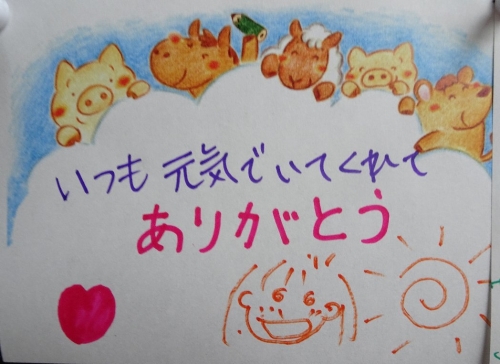 いつも元気でいてくれて
ありがとう